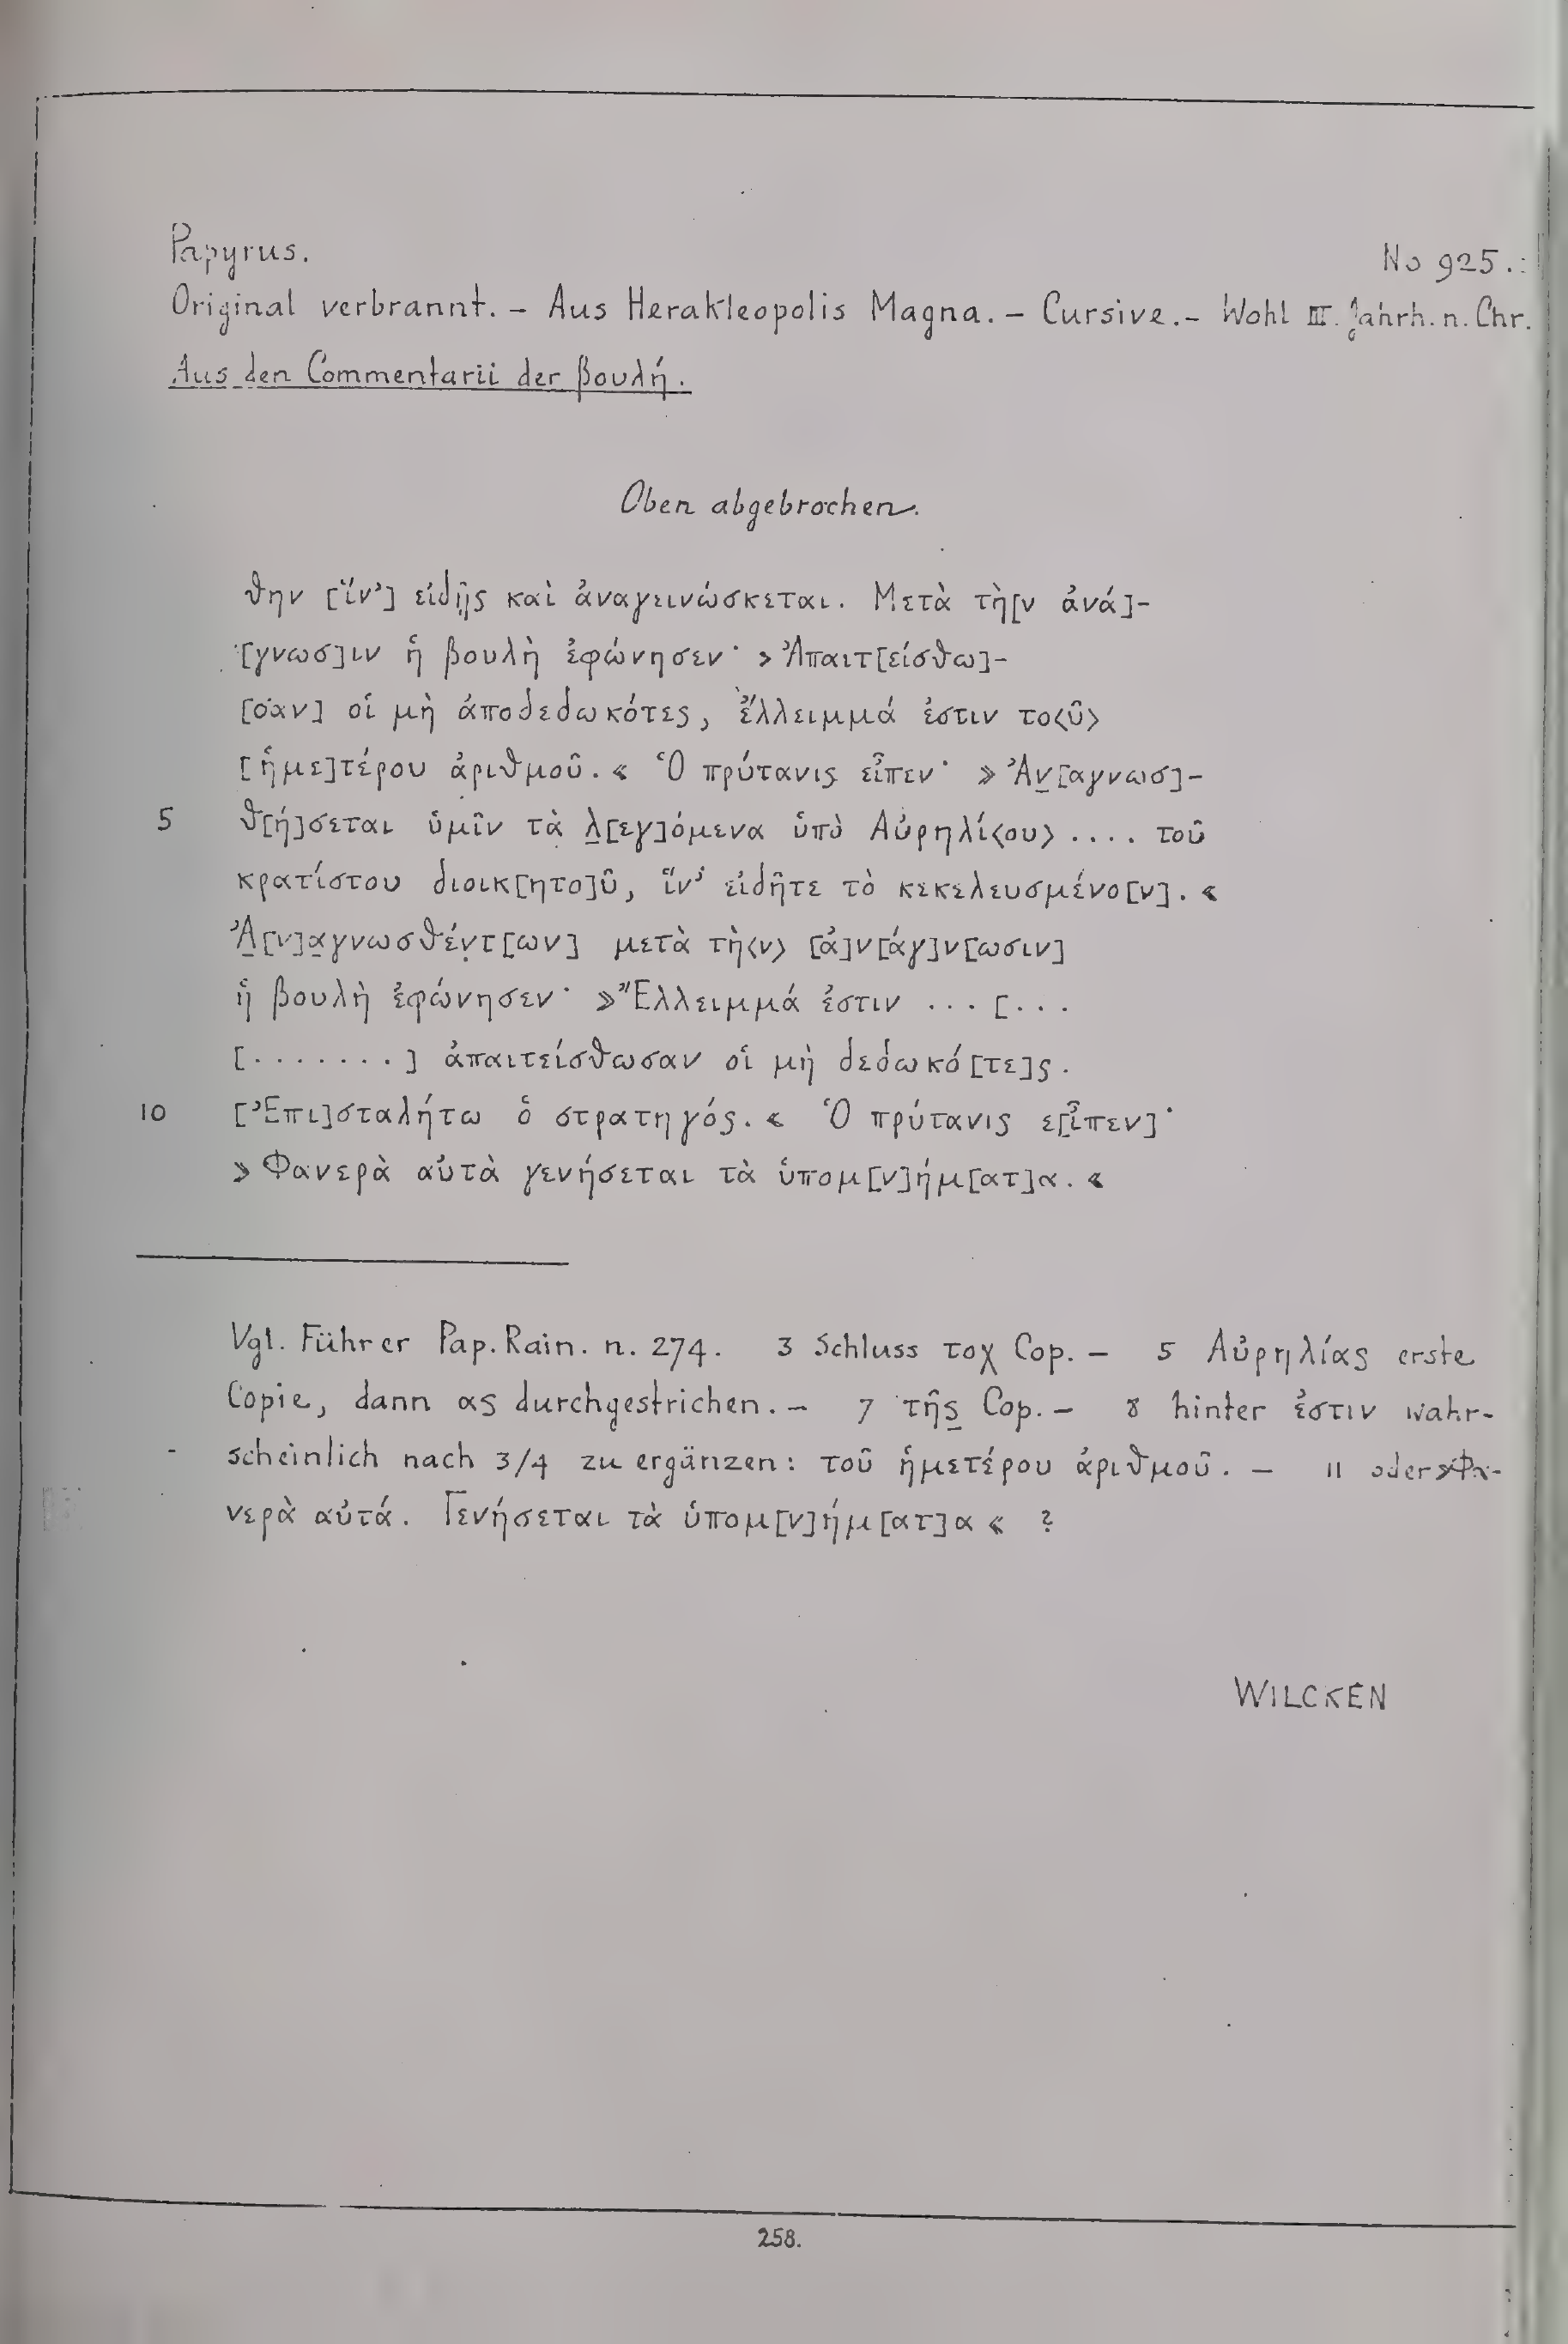 Papyrus.
No 925.
Original verbrannt. – Aus Herakleopolis Magna. – Cursive. – Wohl III. Jahrh. n. Chr.
Aus den Commentarii der βουλή.
Oben abgebrochen.
θην [ἵν'] εἰδῇς καὶ ἀναγεινώσκεται. Μετὰ τὴ[ν ἀνά]-
[γνωσ]ιν ἡ βουλὴ ἐφώνησεν· » Ἀπαιτ[είσθω]-
[σαν] οἱ μὴ ἀποδεδωκότες, ἔλλειμμά ἐστιν το<ῦ>
[ἡμε]τέρου ἀριθμοῦ. « Ὁ πρύτανις εἶπεν· » Ἀν̲[αγνωσ]-
5 θ[ή]σεται ὑμῖν τὰ λ̲[εγ]όμενα ὑπὸ Αὐρηλί<ου> .... τοῦ
κρατίστου διοικ[ητο]ῦ, ἵν' εἰδῆτε τὸ κεκελευσμένο[ν]. «
Ἀ̲[ν]α̲γνωσθέν̣τ[ων] μετὰ τὴ<ν> [ἀ]ν[άγ]ν[ωσιν]
ἡ βουλὴ ἐφώνησεν· » Ἔλλειμμά ἐστιν ... [...
[.......] ἀπαιτείσθωσαν οἱ μὴ δεδωκό[τε]ς.
10 [Ἐπι]σταλήτω ὁ στρατηγός. « Ὁ πρύτανις ε[ἶπεν]·
» Φανερὰ αὐτὰ γενήσεται τὰ ὑπομ[ν]ήμ[ατ]α. «
Vgl. Führer Pap. Rain. n. 274. 3 Schluss τοχ Cop. – 5 Αὐρηλίας erste
Copie, dann ας durchgestrichen. – 7 τῆς̲ Cop. – 8 hinter ἐστιν wahr-
scheinlich nach 3/4 zu ergänzen: τοῦ ἡμετέρου ἀριθμοῦ. – 11 oder »Φα-
νερὰ αὐτά. Γενήσεται τὰ ὑπομ[ν]ήμ[ατ]α « ?
WILCKEN
258.